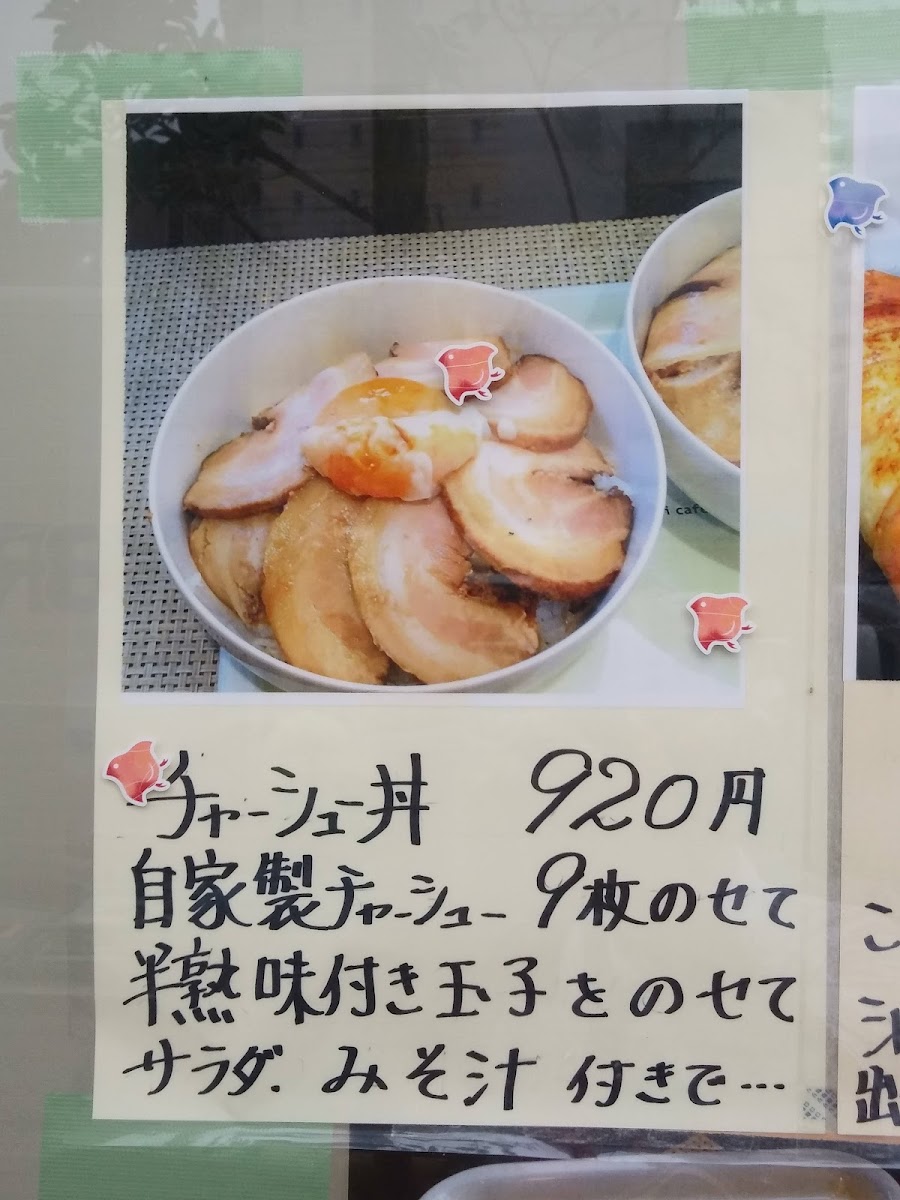 チャーシュー丼 920円
自家製チャーシュー 9枚のせて
半熟味付き玉子をのせて
サラダ. みそ汁 付きで…
cafe
出